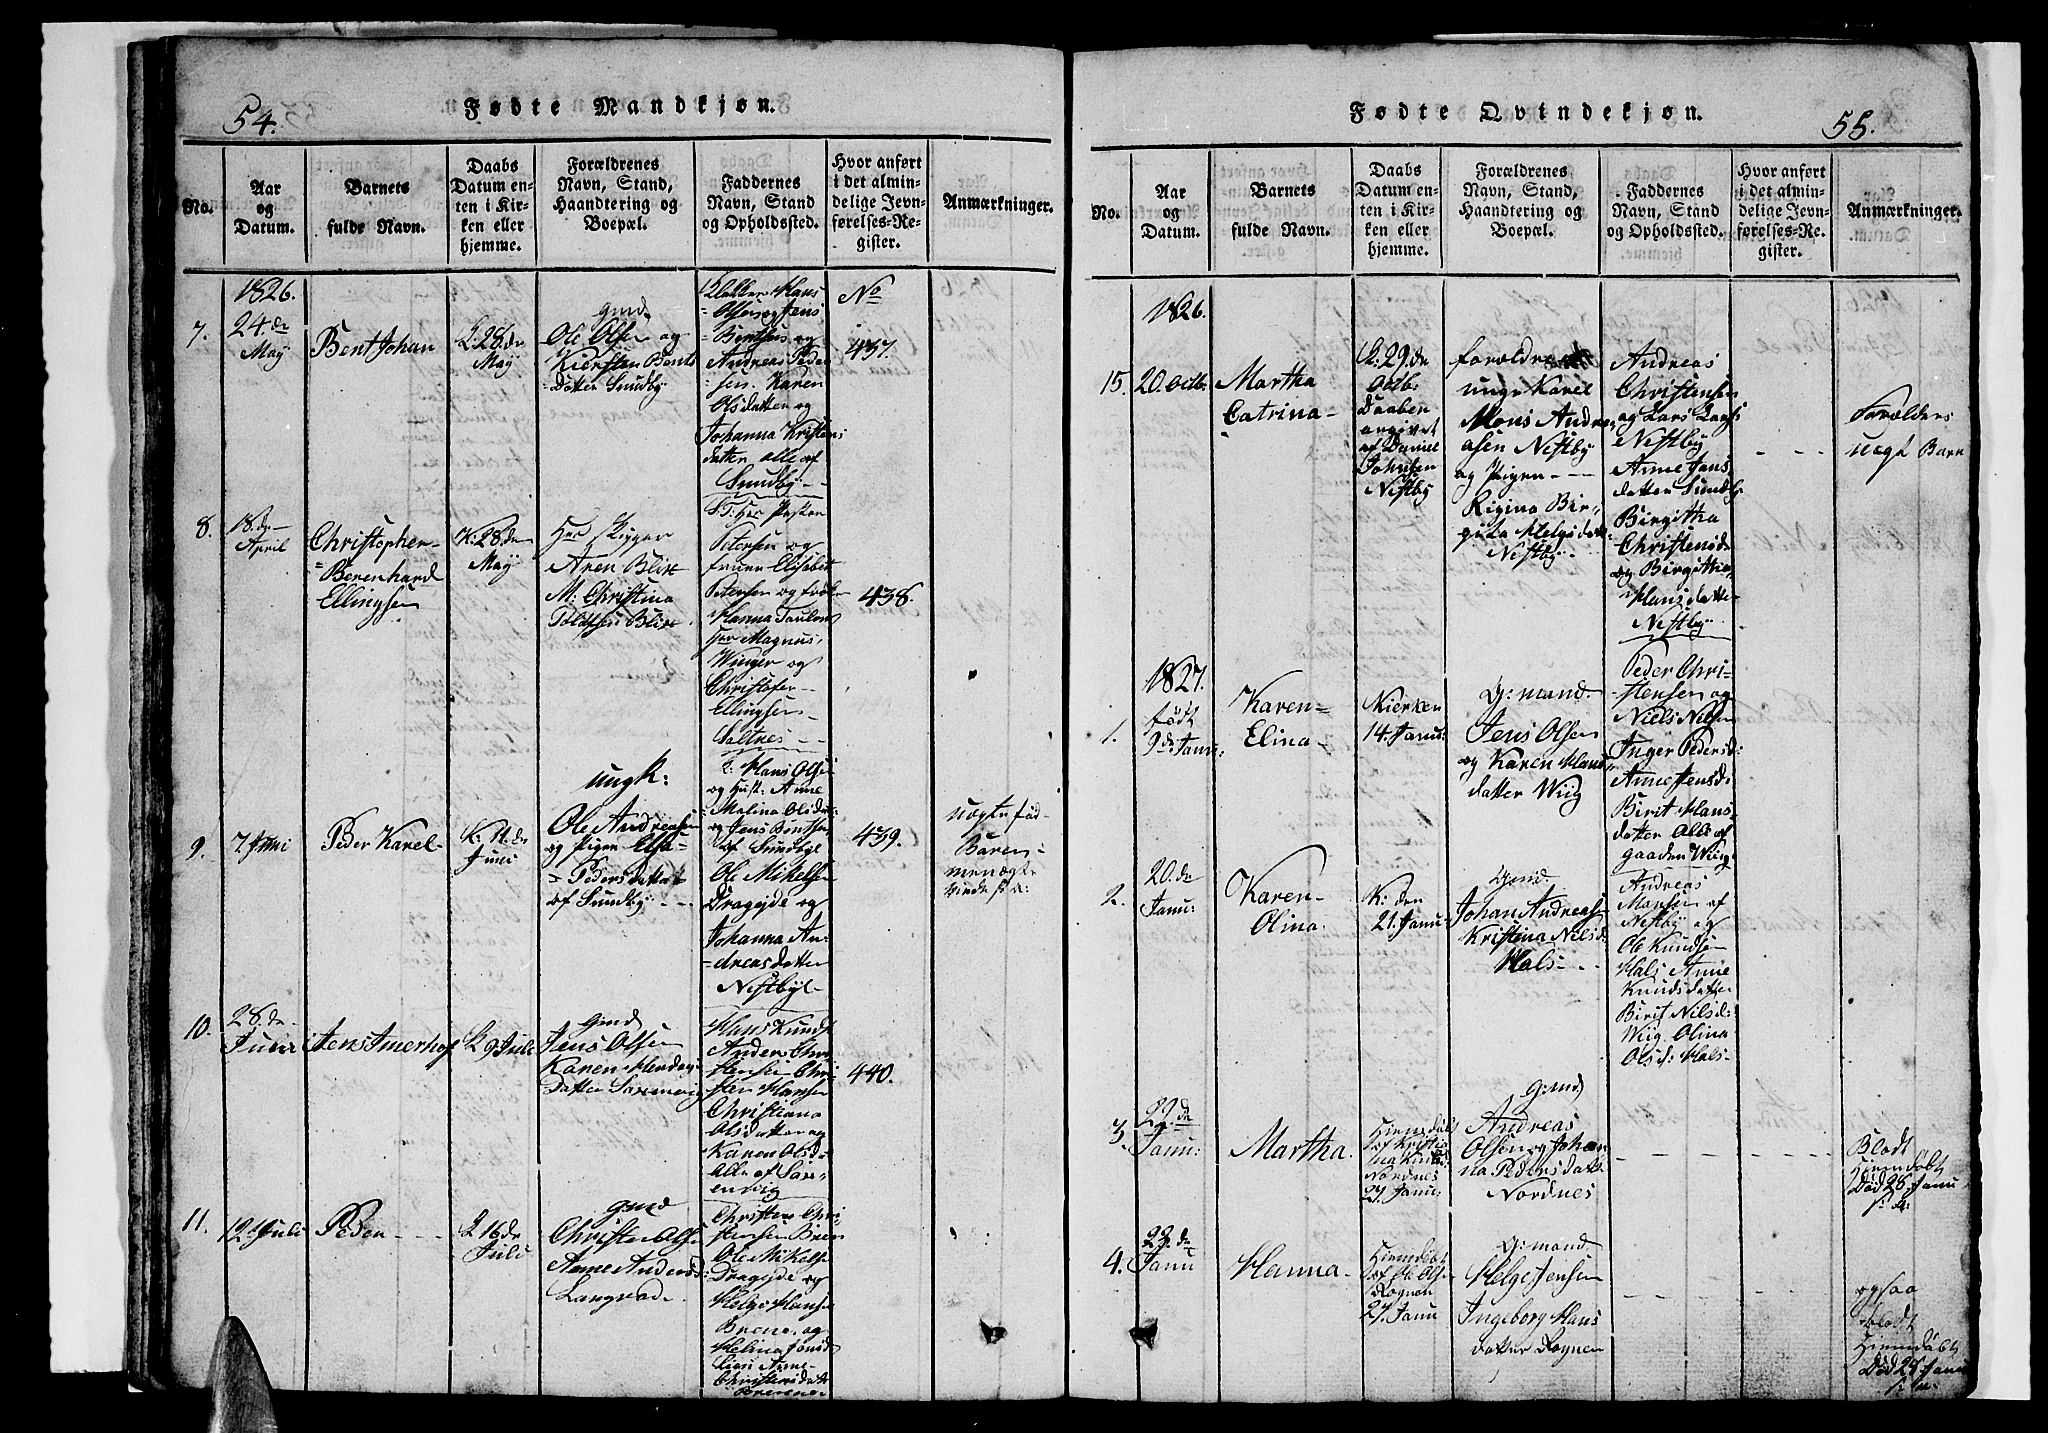 54.
Fødte Mandkjøn.
No.
Aar
og
Datum.
Barnets
fulde Navn.
Daabs
Datum en-
ten i Kir-
ken eller
hjemme.
Forældrenes
Navn, Stand,
Haandtering og
Boepæl.
Faddernes
Navn, Stand
og Opholdssted.
Hvor anført
i det almin-
delige Jevn-
førelses-Re-
gister.
Anmærkninger.
1826.
7.
24 de
May
Bent Johan
K: 28 de
May
gmd.
Ole Olsen og
Kiersten Bents
=datter Sundby
Hans
=Olsen og Jens
Bentsen og
Andreas Peder
=sen. Karen
Olsdatter og
Johanna Kristens
datter alle af
Sundby
No
437.
8.
18. de
April
Christopher
=Berenhard
Ellingsen
K: 28. de
May
Hr Skipper
Aren Blix
M: Christina
Blix
F: Her Pastor
Petersen og
frue Elisabet
Petersen og frøken
Hanna
Hr Magnus
Winger og
Christofer
Ellingsen
Saltnes
438.
9.
7 Juni
Peder Karel
K: 11. de
Juni
ungk:
Ole Andreasen
og Pigen Elsa
=Pedersdatter
af Sundby
Hans Olsen
og Hust: Anne
Malina Olsd
og Jens Bentsen
af Sundbye
Ole Mikelsen
Dragejde og
Johanna An
=dreasdatter
Nestbye
439.
uegte fød
Baren
10.
28. de
Juni
Jens Imerhof
K 9 Juli
gmd
Jens Olsen
Karen Hendrics
Datter Saxenvig
Hans Kundt
Anders Chri
stensen Chri
sten Hansen
Christiana
Olsdatter og
Karen Olsd
Alle af Sax
envig
440.
11.
12. Juli
Peder
K 16 de
Juli
gmd
Christen Olsen
Anne Andersd:
Langvad
Christen Chri
stensen Bren
Ole Mikelsen
Dragejde og
Helge Hansen
Brene. og
Melina Jonsd
Anne
Christensdatter
Brenne
55.
Fødte Qvindekjøn.
No.
Aar
og
Datum.
Barnets
fulde Navn.
Daabs
Datum en-
ten i Kir-
ken eller
hjemme.
Forældrenes
Navn, Stand,
Haandtering og
Boepæl.
Faddernes
Navn, Stand
og Opholdssted.
Hvor anført
i det almin-
delige Jevn-
førelses-Re-
gister.
Anmærkninger.
1826.
15.
20. octbr
Martha
Catrina
K: 29. de
octbr
Daaben
angivet
af Daniel
Johnsen
Nestby
forældre
unge Karel
Mons Andre
asen Nestby
og Pigen
Rigina Bir
gita Helgsdatt:
Nestby
Andreas
Christensen
og Lars Larsen
Nestby
Anne Jans
datter Sundby
Birgitha
Christensd
og Birgitha
Hansdatter
Nestby
Forælders
uegt Barn
1827.
1.
født
9 de Janu:
Karen=
Elina
Kierken
14. Janu:
G: mand.
Jens Olsen
og Karen Hans
datter Wiig
Peder Chri=
stensen og
Niels Nilsen
Inger Pedersd:
Anne Jensd:
Birit Hans
datter alle af
gaarden Wiig
2.
20. de
Janu:
Karen
Olina.
K: den
21. Janu:
Gmd.
Johan Andreasen
Kristina Nilsd:
Hals
Andreas
Monsen af
Nestby og
Ole Knudsen
Hals Anne
Knudsdatter
Birit Nilsd:
Wiig Olina
Olsd: Hals
3.
22. de
Janu:
Martha.
Hiemdøbt
af Kristia
na Knudsd:
Nordnes
27. Janu:
G: md
Andreas
Olsen og Johan
na Pedersdatt
Nordnes
Blodt
Hiemdøbt
Død 28 Janu
4.
22. de
Janu
Hanna.
Hiemdøbt
af Ole Olsen
Rognan
27. Janu
G: mand.
Helge Jensen
Ingeborg Hans
datter Rognan
ogsaa
blodt
Hiemdøbt
Død 28 Janu